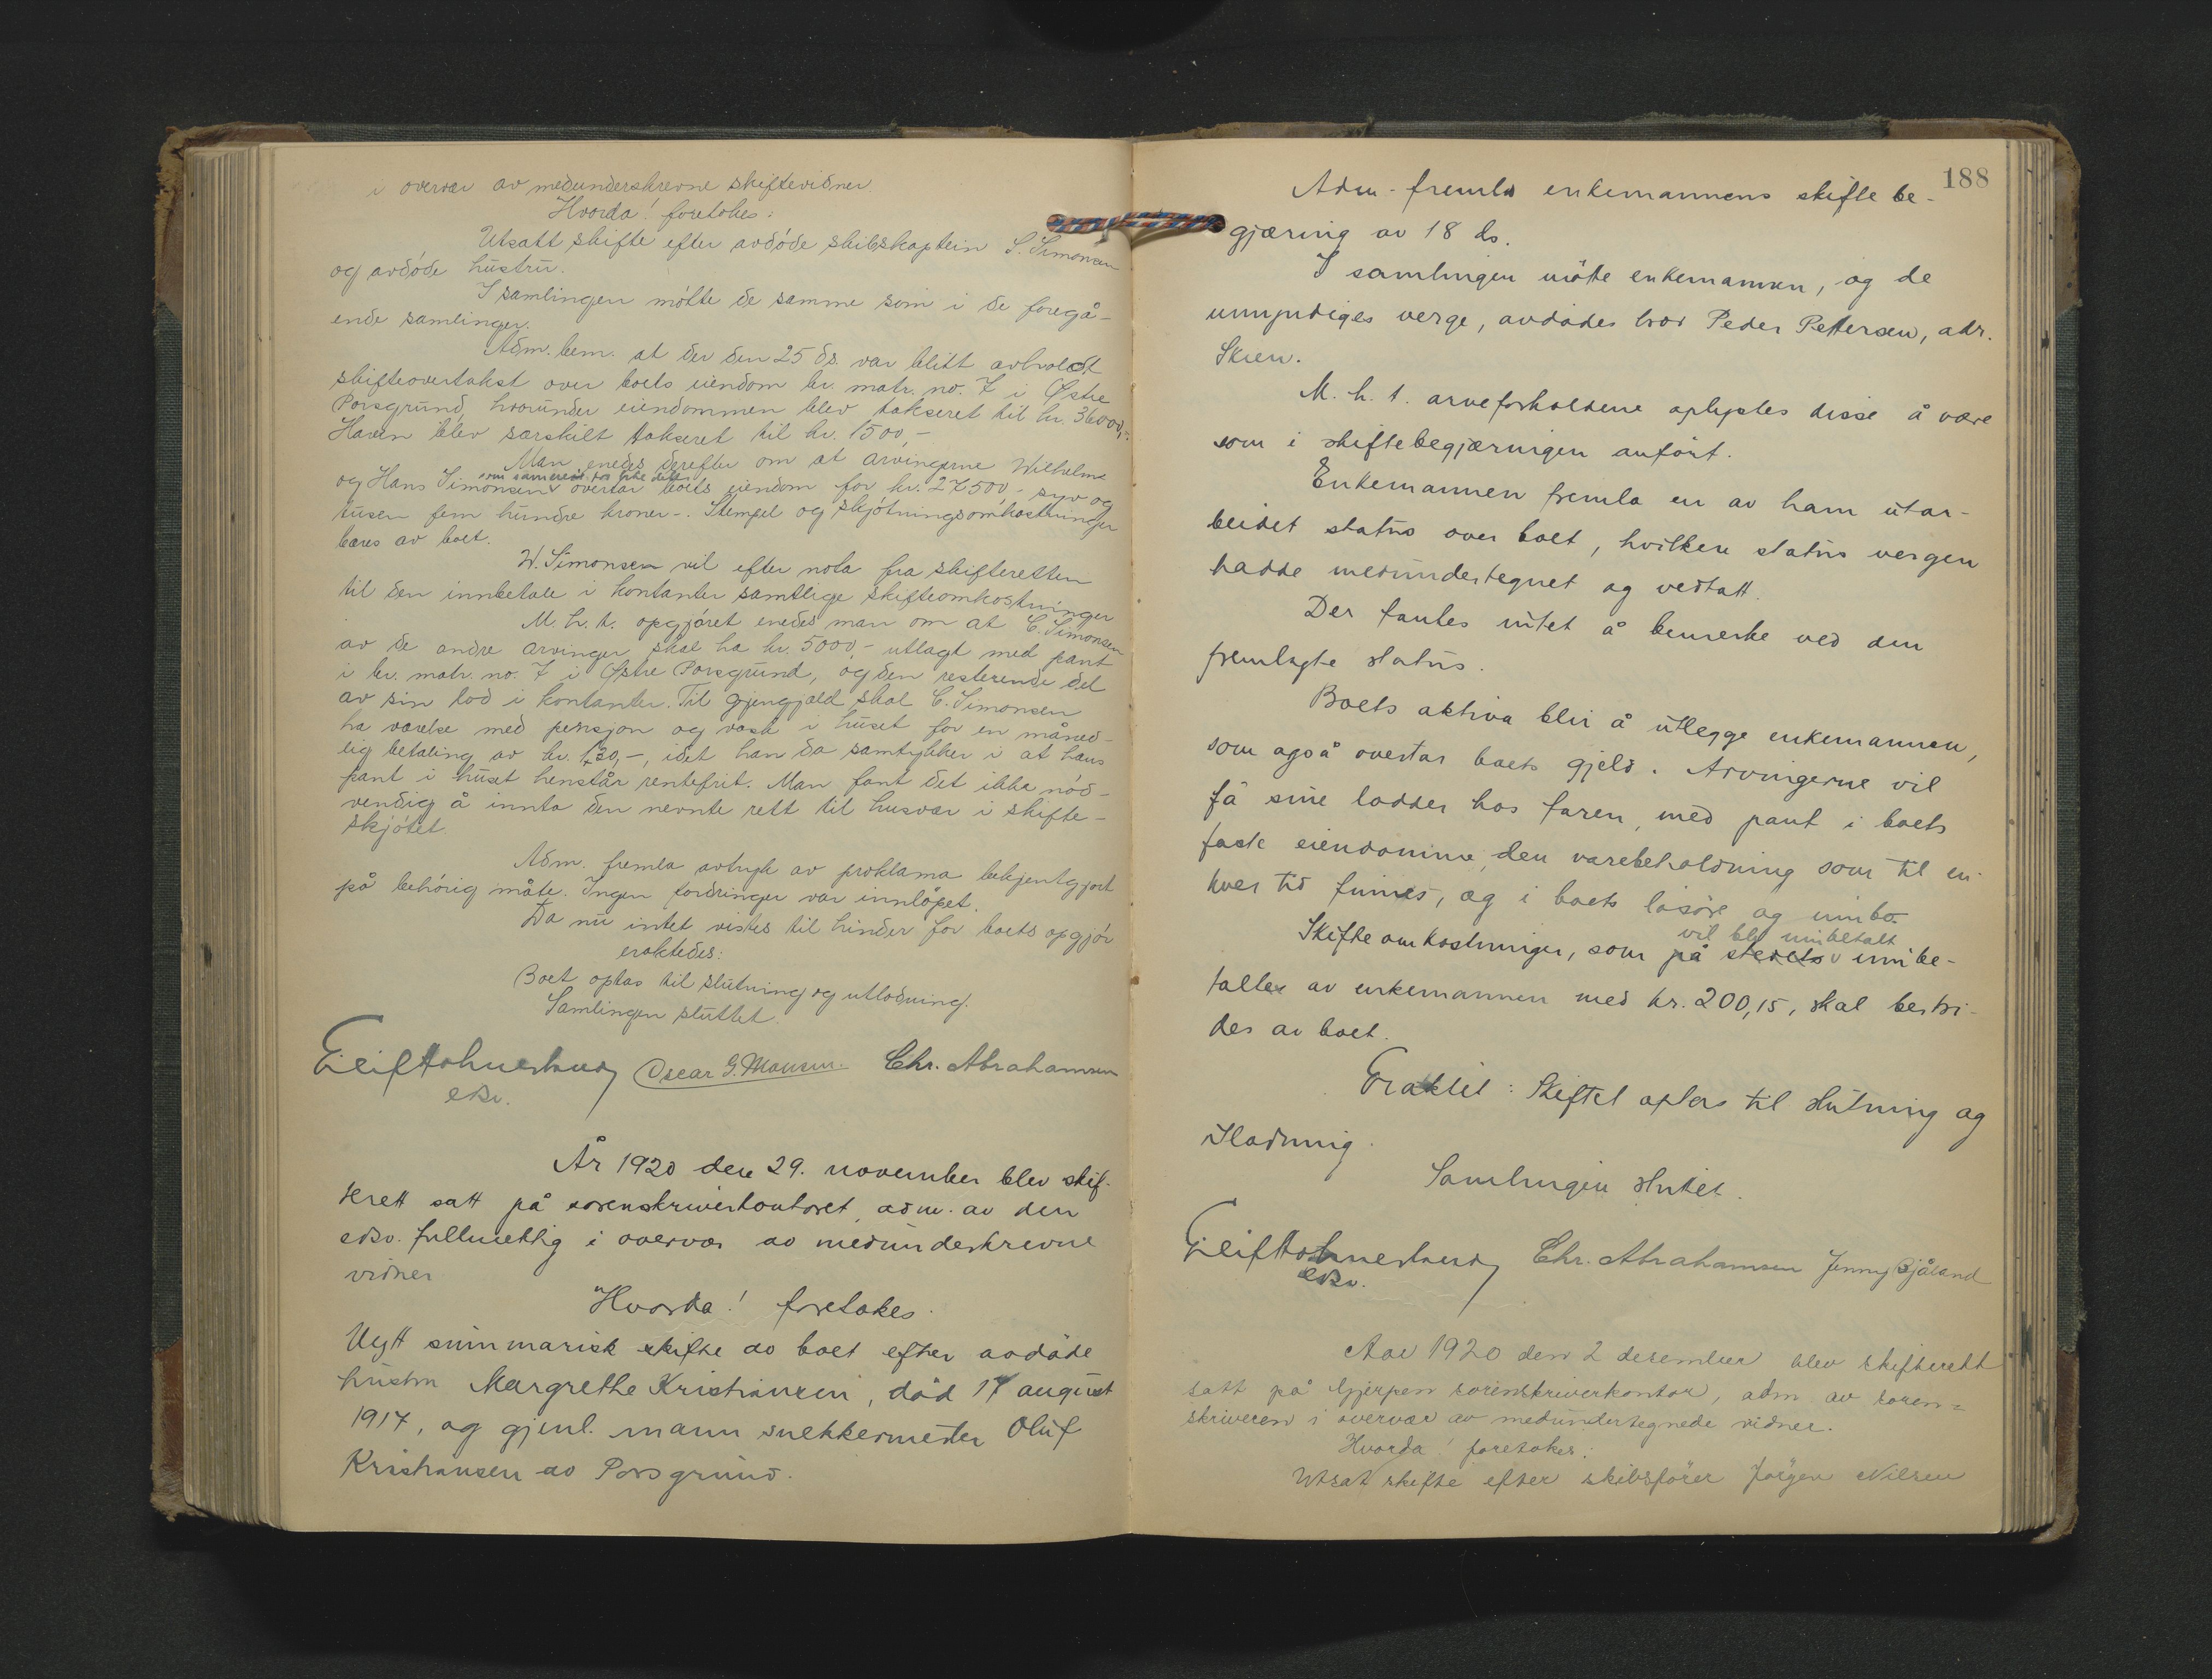 i overvær av medunderskrevne skiftevidner.
Hvorda! foretokes:
Utsatt skifte efter avdøde skibskaptein S. Simonsen
og avdøde hustru.
I samlingen møtte de samme som i de foregå-
ende samlinger.
Adm. bem. at der den 25 ds. var blitt avholdt
skifteovertakst over boets eiendom br. matr. no. 7 i Østre
Porsgrund, hvorunder eiendommen blev takseret til kr. 36000,-.
Haven blev særskilt takseret til kr. 1500,-
Man enedes derefter om at arvingerne Wilhelm
og Hans Simonsen overtar boets eiendom for kr. 27500 - syv og
tusen fem hundre kroner -. Stempel og skjøtningsomkostninger
bæres av boet.
W. Simonsen vil efter nota fra skifteretten
til den innbetale i kontanter samtlige skifteomkostninger
M. h. t. opgjøret enedes man om at C. Simonsen
av de andre arvinger skal ha kr. 5000,- utlagt med pant
i br. matr. no. 7 i Østre Porsgrund, og den resterende del
av sin lod i kontanter. Til gjengjæld skal C. Simonsen
ha værelse med pensjon og vask i huset for en måned-
lig betaling av kr. 130,-, idet han da samtykker i at hans
pant i huset henstår rentefrit. Man fant det ikke nød-
vendig å innta den nevnte rett til husvær i skifte-
skjøtet.
Adm. fremla avtrykk av proklama bekjentgjort
på behørig måte. Ingen fordringer var innløpet.
Da nu intet vistes til hinder for boets opgjør
eraktedes:
Boet optas til slutning og utlodning.
Samlingen sluttet.
Oscar G. Chr. Abrahamsen
År 1920 den 29. november blev skif-
terett satt på sorenskriverkontoret, adm. av den
edsv. fullmektig i overvær av medunderskrevne
vidner
Hvorda! foretokes.
Nytt summarisk skifte av boet efter avdøde
hustru Margrethe Kristiansen, død 17 august
1917, og gjenl. mann snekkermester Oluf
Kristiansen av Porsgrund.
188
Adm. fremla enkemannens skiftebe-
gjæring av 18 ds.
I samlingen møtte enkemannen, og de
umyndiges verge, avdødes bror Peder Pettersen, adr.
Skien.
M. h. t. arveforholdene oplystes disse å være
som i skiftebegjæringen anført.
Enkemannen fremla en av ham utar-
beidet status over boet, hvilken status vergen
hadde medundertegnet og vedtatt.
Der fantes intet å bemerke ved den
fremlagte status.
Boets aktiva blir å utlegge enkemannen,
som også overtar boets gjeld. Arvingerne vil
få sine lodder hos faren, med pant i boets
faste eiendomme, den varebeholdning som til en-
hver tid finnes, og i boets løsøre og innbo.
vil bli innbetalt
Skifteomkostninger, som på stedets innbe-
tales av enkemannen med kr. 200,15, skal bestri-
des av boet.
Eraktet: Skiftet optas til slutning og
utlodning.
Samlingen sluttet.
edsv. Chr. Abrahamsen Jenny Bjåland
Aar 1920 den 2 desember blev skifterett
satt på Gjerpen sorenskriverkontor, adm. av soren=
skriveren i overvær av medundertegnede vidner.
Hvorda! foretokes:
Utsat skifte efter skibsfører Jørgen Nilsen